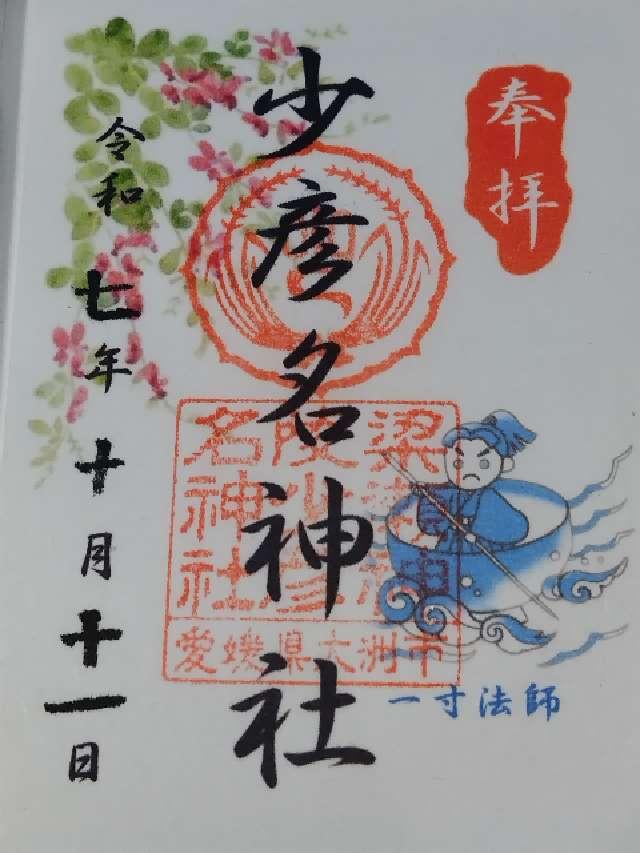 奉拝
少彦名神社
梁瀬神
陵少彦
名神社
愛媛県大洲市
一寸法師
令和七年十月十一日